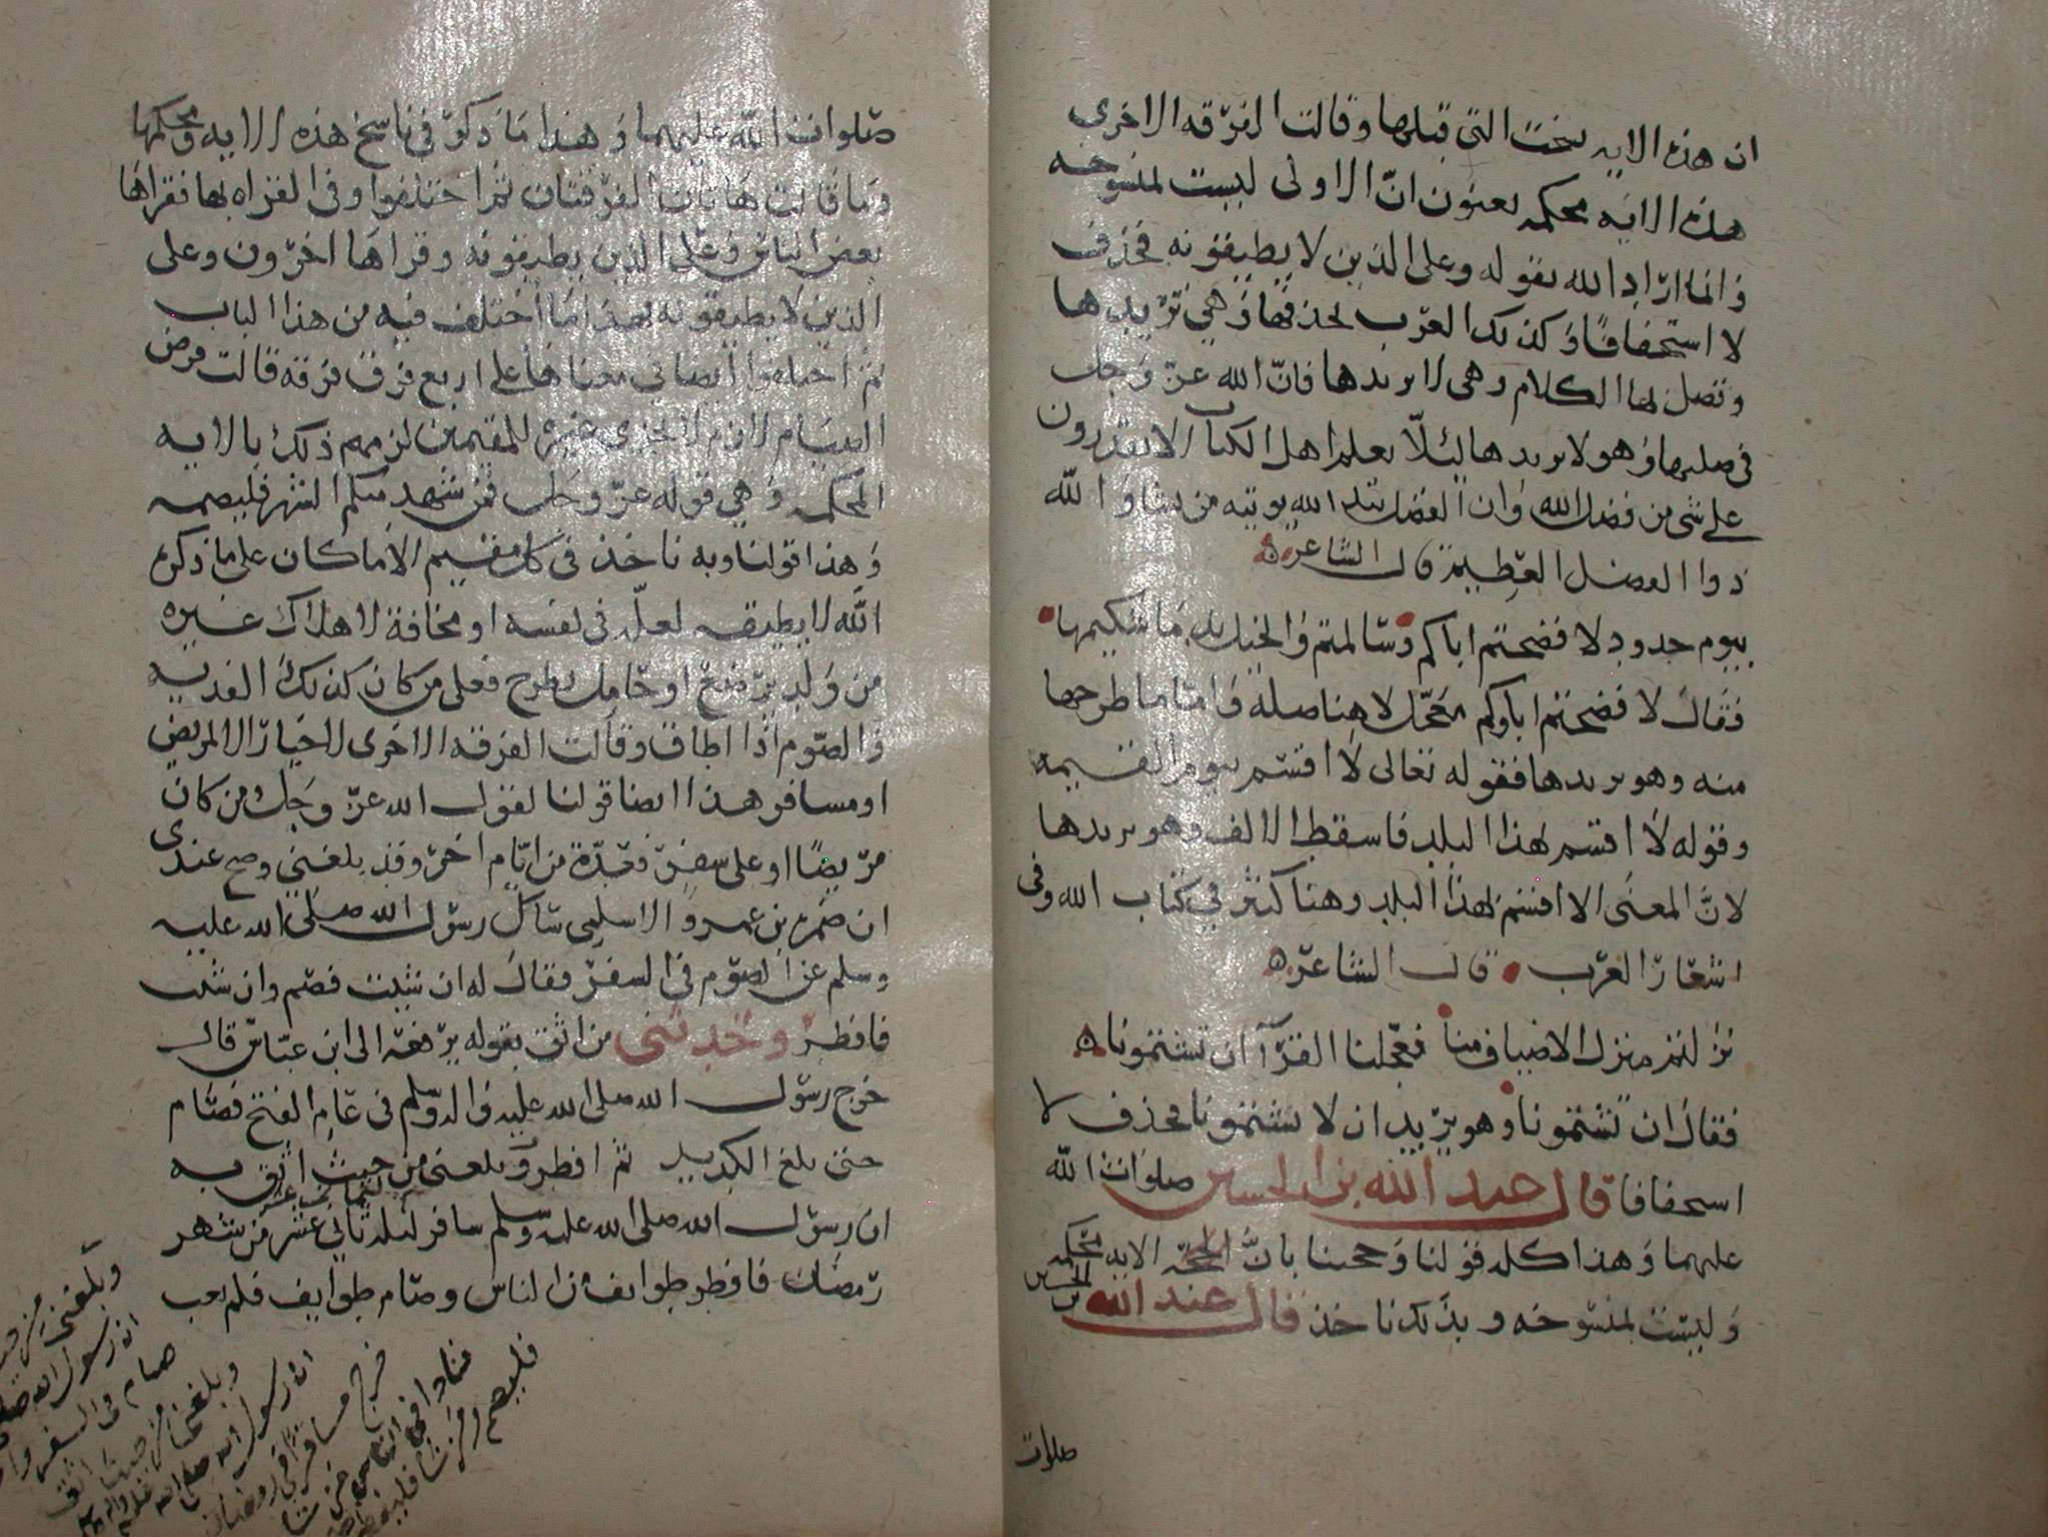 ان هذه الايه نسخت التي قبلها وقالت الفرقه الاخرى
هذه الايه محكمه يعنون انّ الاولى ليست بمنسوخه
وانما اراد الله بقوله وعلى الذين لا يطيقونه فحذف
لا استخفافًا وكذلك العرب تحذفها وهي تريدها
وتصل بها الكلام وهي لا تريدها فانّ الله عزّ وجل
في صلتها وهو لا يريدها ليلّا يعلم اهل الكتاب الا يقدرون
على شى من فضل الله وان الفضل بيد الله يوتيه من يشا والله
ذوا الفضل العظيم قال الشاعر
بيوم جدود لا فضحتم اباكم وسالمتم والخيل تدما شكيمها
فقال لا فضحتم اباوكم فجعل لا هنا صله واما ما طرحها
منه وهو يريدها فقوله تعالى لا اقسم بيوم القيمه
وقوله لا اقسم بهذا البلد فاسقط الالف وهو يريدها
لانّ المعنى الا اقسم بهذا البلد وهنا كثير في كتاب الله وفى
اشعار العرب قال الشاعر
نزلتم منزل الاضياف منا فعجلنا القرآ ان تشتمونا
فقال ان تشتمونا وهو يريد ان لا تشتمونا فحذف لا
استخفافا قال عبد الله بن الحسين صلوات الله
عليهما وهذا كله قولنا وحجتنا بانّ الحجّه الايه محكمه
وليست بمنسوخه وبذلك ناخذ قال عبد الله
بن الحسين
صلوات
صلوات الله عليهما وهذا ما ذكر في ناسخ هذه الايه ومحكمها
وما قالت هاتان الفرقتان ثم اختلفوا في القراه بها فقراها
بعض الناس وعلى الذين يطيقونه وقراها اخرون وعلى
الذين لا يطيقونه فهذا ما اختلف فيه من هذا الباب
ثم اختلفوا ايضا في معناها على اربع فرق فرقه قالت فرض
الصيام لازم لا يجزى غيره للمقيمين لزمهم ذلك بالايه
المحكمه وهي قوله عزّ وجل فمن شهد منكم الشهر فليصمه
وهذا قولنا وبه ناخذ فى كل مقيم الا ما كان على ما ذكره
الله لا يطيقه لعلّه فى نفسه او مخافة لاهلاك غيره
من ولد يرضع او حامل يطرح فعلى من كان كذلك الفديه
والصّوم اذا اطاق وقالت الفرقه الاخرى لا خيار الا لمريض
او مسافر هذا ايضا قولنا لقول الله عزّ وجل ومن كان
مريضًا او على سفر فعدّة من ايّام اخر وقد بلغني وصح عندى
ان ضمره بن عمرو الاسلمى سال رسول الله صلى الله عليه
وسلم عن الصّوم فى السفر فقال له ان شئت فصم وان شئت
فافطر وحدثنى من اثق بقوله يرفعه الى ابن عبّاس قال
خرج رسول الله صلى الله عليه واله وسلم فى عام الفتح فصام
حتى بلغ الكديد ثم افطر وبلغنى من حيث اثق به
ان رسول الله صلى الله عليه وسلم سافر لثانى عشر من شهر
لثمان عشر
رمضان فافطر طوايف من الناس وصام طوايف فلم يعب
وبلغنى من
ان رسول الله
صام فى السفر
وبلغنا من حيث اثق
ان رسول الله صلى الله عليه واله وسلم
خرج مسافرا فى رمضان
فنادا فى الناس من شا
فليصم ومن شا فليفطر